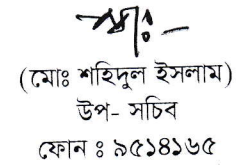 স্বাঃ-
(মোঃ শহিদুল ইসলাম)
উপ- সচিব
ফোন ঃ ৯৫১৪১৬৫